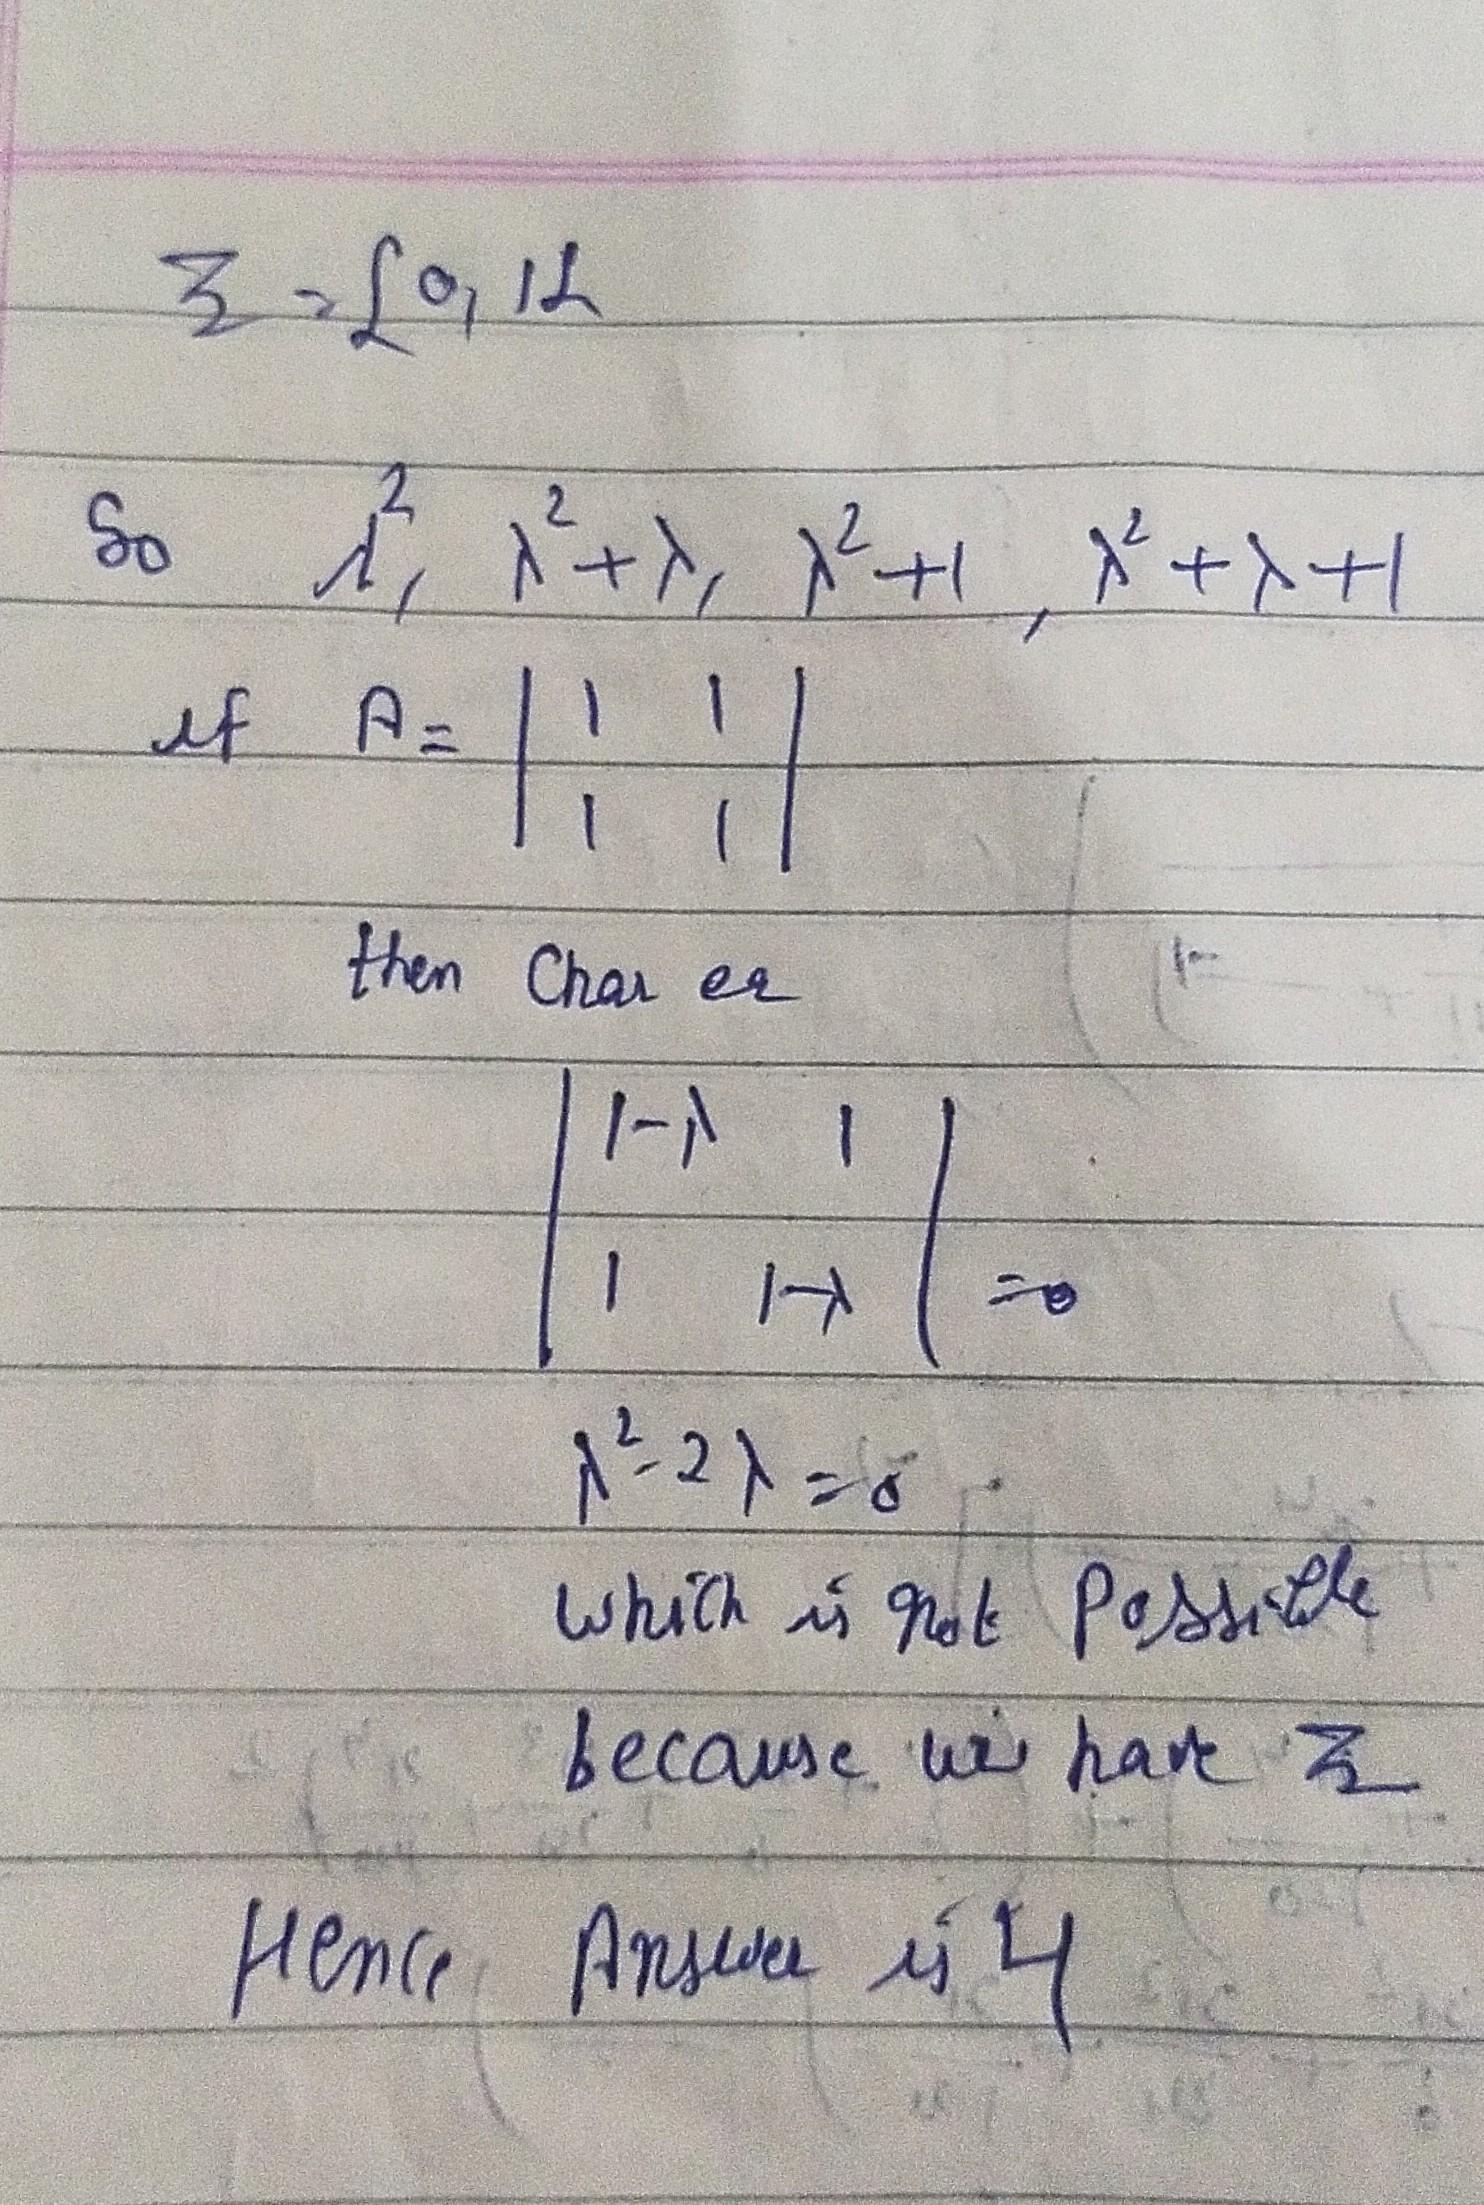 ℤ₂ = {0, 1}
So λ², λ²+λ, λ²+1, λ²+λ+1
if A = | 1 1 |
| 1 1 |
then Char eq
| 1-λ 1 |
| 1 1-λ | = 0
λ² - 2λ = 0
which is not Possible
because we have ℤ₂
Hence Answer is 4